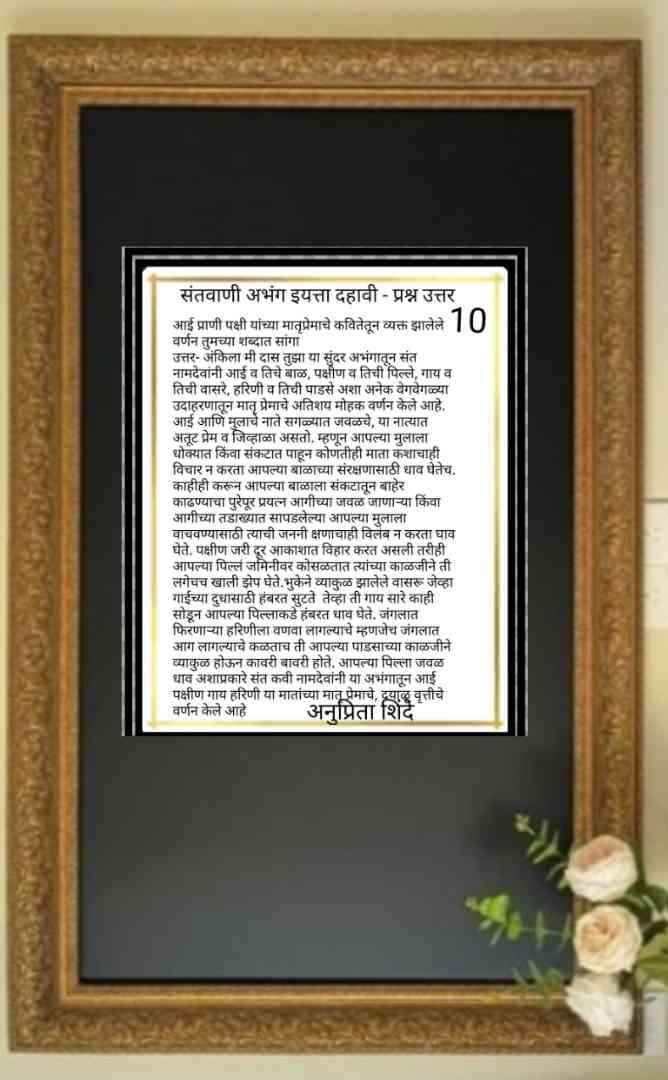 संतवाणी अभंग इयत्ता दहावी - प्रश्न उत्तर
10
आई प्राणी पक्षी यांच्या मातृप्रेमाचे कवितेतून व्यक्त झालेले
वर्णन तुमच्या शब्दात सांगा
उत्तर- अंकिला मी दास तुझा या सुंदर अभंगातून संत
नामदेवांनी आई व तिचे बाळ, पक्षीण व तिची पिल्ले, गाय व
तिची वासरे, हरिणी व तिची पाडसे अशा अनेक वेगवेगळ्या
उदाहरणातून मातृ प्रेमाचे अतिशय मोहक वर्णन केले आहे.
आई आणि मुलाचे नाते सगळ्यात जवळचे, या नात्यात
अतूट प्रेम व जिव्हाळा असतो. म्हणून आपल्या मुलाला
धोक्यात किंवा संकटात पाहून कोणतीही माता कशाचाही
विचार न करता आपल्या बाळाच्या संरक्षणासाठी धाव घेतेच.
काहीही करून आपल्या बाळाला संकटातून बाहेर
काढण्याचा पुरेपूर प्रयत्न आगीच्या जवळ जाणाऱ्या किंवा
आगीच्या तडाख्यात सापडलेल्या आपल्या मुलाला
वाचवण्यासाठी त्याची जननी क्षणाचाही विलंब न करता धाव
घेते. पक्षीण जरी दूर आकाशात विहार करत असली तरीही
आपल्या पिल्लं जमिनीवर कोसळतात त्यांच्या काळजीने ती
लगेचच खाली झेप घेते.भुकेने व्याकुळ झालेले वासरू जेव्हा
गाईच्या दुधासाठी हंबरत सुटते तेव्हा ती गाय सारे काही
सोडून आपल्या पिल्लाकडे हंबरत धाव घेते. जंगलात
फिरणाऱ्या हरिणीला वणवा लागल्याचे म्हणजेच जंगलात
आग लागल्याचे कळताच ती आपल्या पाडसाच्या काळजीने
व्याकुळ होऊन कावरी बावरी होते. आपल्या पिल्ला जवळ
धाव अशाप्रकारे संत कवी नामदेवांनी या अभंगातून आई
पक्षीण गाय हरिणी या मातांच्या मातृ प्रेमाचे, दयाळू वृत्तीचे
वर्णन केले आहे
अनुप्रिता शिंदे